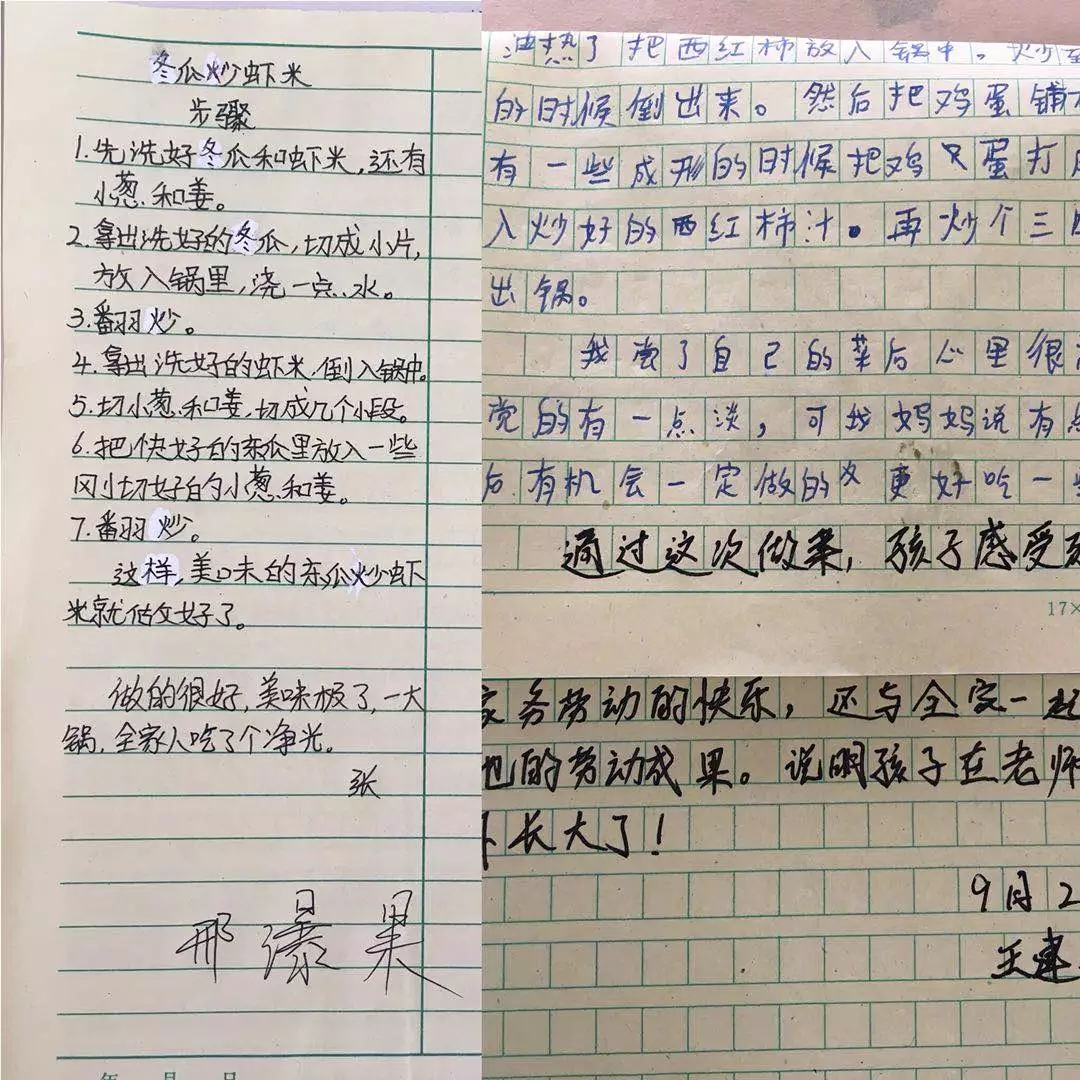 冬瓜炒虾米
步骤
1.先洗好冬瓜和虾米,还有
小葱和姜。
2.拿出洗好的冬瓜,切成小片,
放入锅里,浇一点水。
3.翻炒。
4.拿出洗好的虾米,倒入锅中。
5.切小葱和姜,切成几个小段。
6.把快好的东瓜里放入一些
刚切好的小葱和姜。
7.翻炒。
这样,美味的东瓜炒虾
米就做好了。
做的很好,美味极了,一大
锅,全家人吃了个净光。
张
邢 果
年 月 日
油热了把西红柿放入锅中。炒至
的时候倒出来。然后把鸡蛋铺
有一些成形的时候把鸡蛋打
入炒好的西红柿汁。再炒个三四
出锅。
我尝了自己的菜后心里很
觉的有一点淡,可我妈妈说有点
后有机会一定做的更好吃一些
通过这次做菜,孩子感受到
17×
家务劳动的快乐,还与全家一起
他的劳动成果。说明孩子在老师
下长大了!
9月2
王建